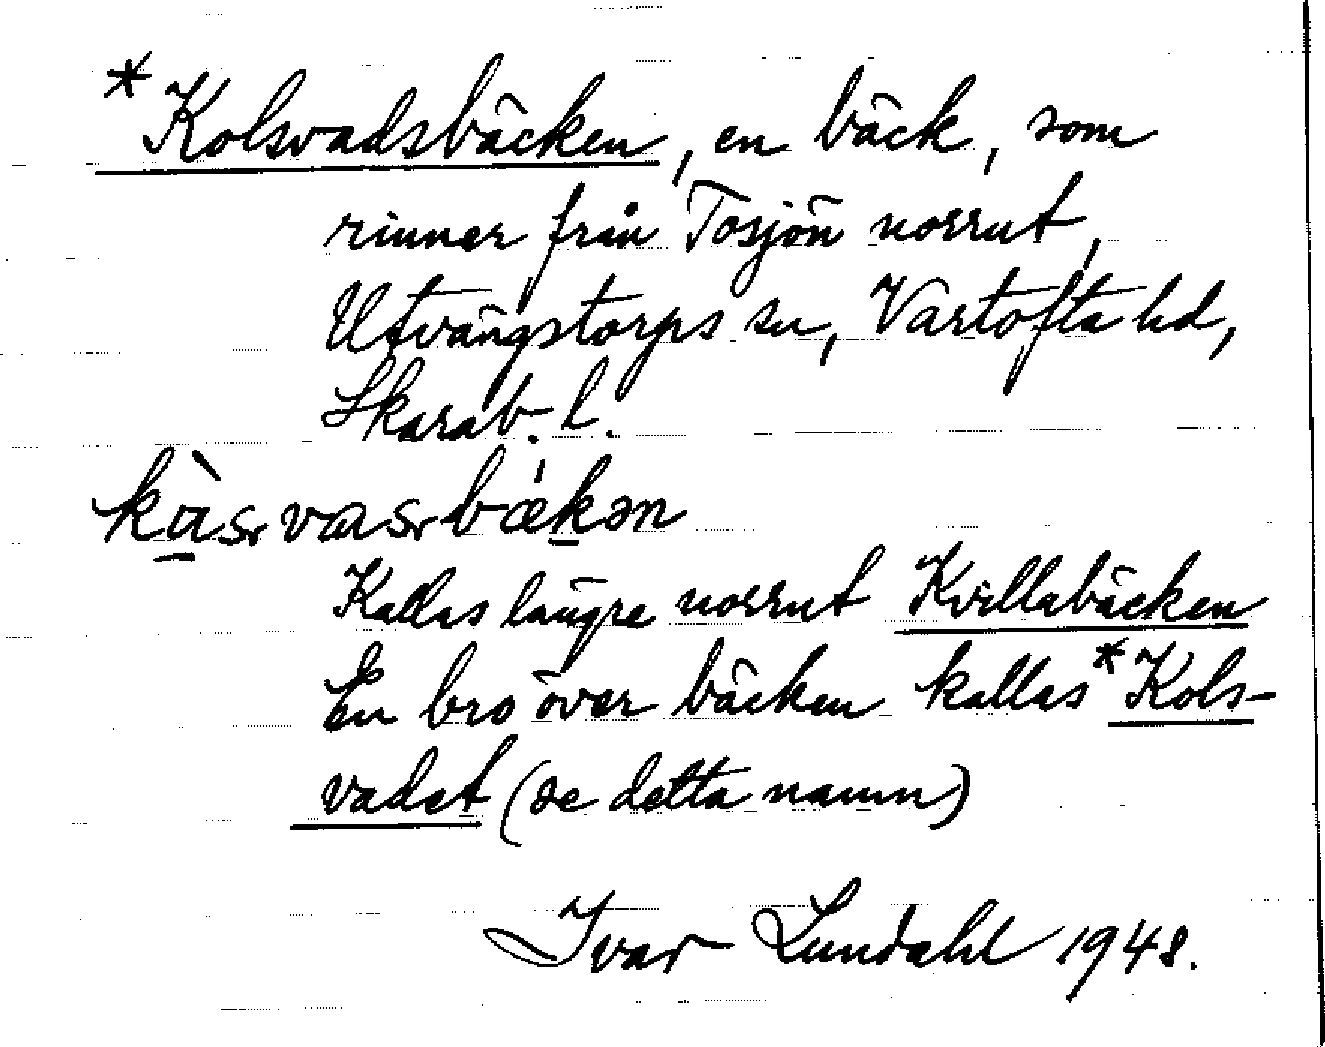 *Kolsvadsbäcken, en bäck, som
rinner från Tosjön norrut,
Utvängstorps sn, Vartofta hd,
Skarab. l.
Kallas längre norrut Kvillabäcken
En bro över bäcken kallas *Kols-
vadet (se detta namn)
Ivar Lundahl 1948.